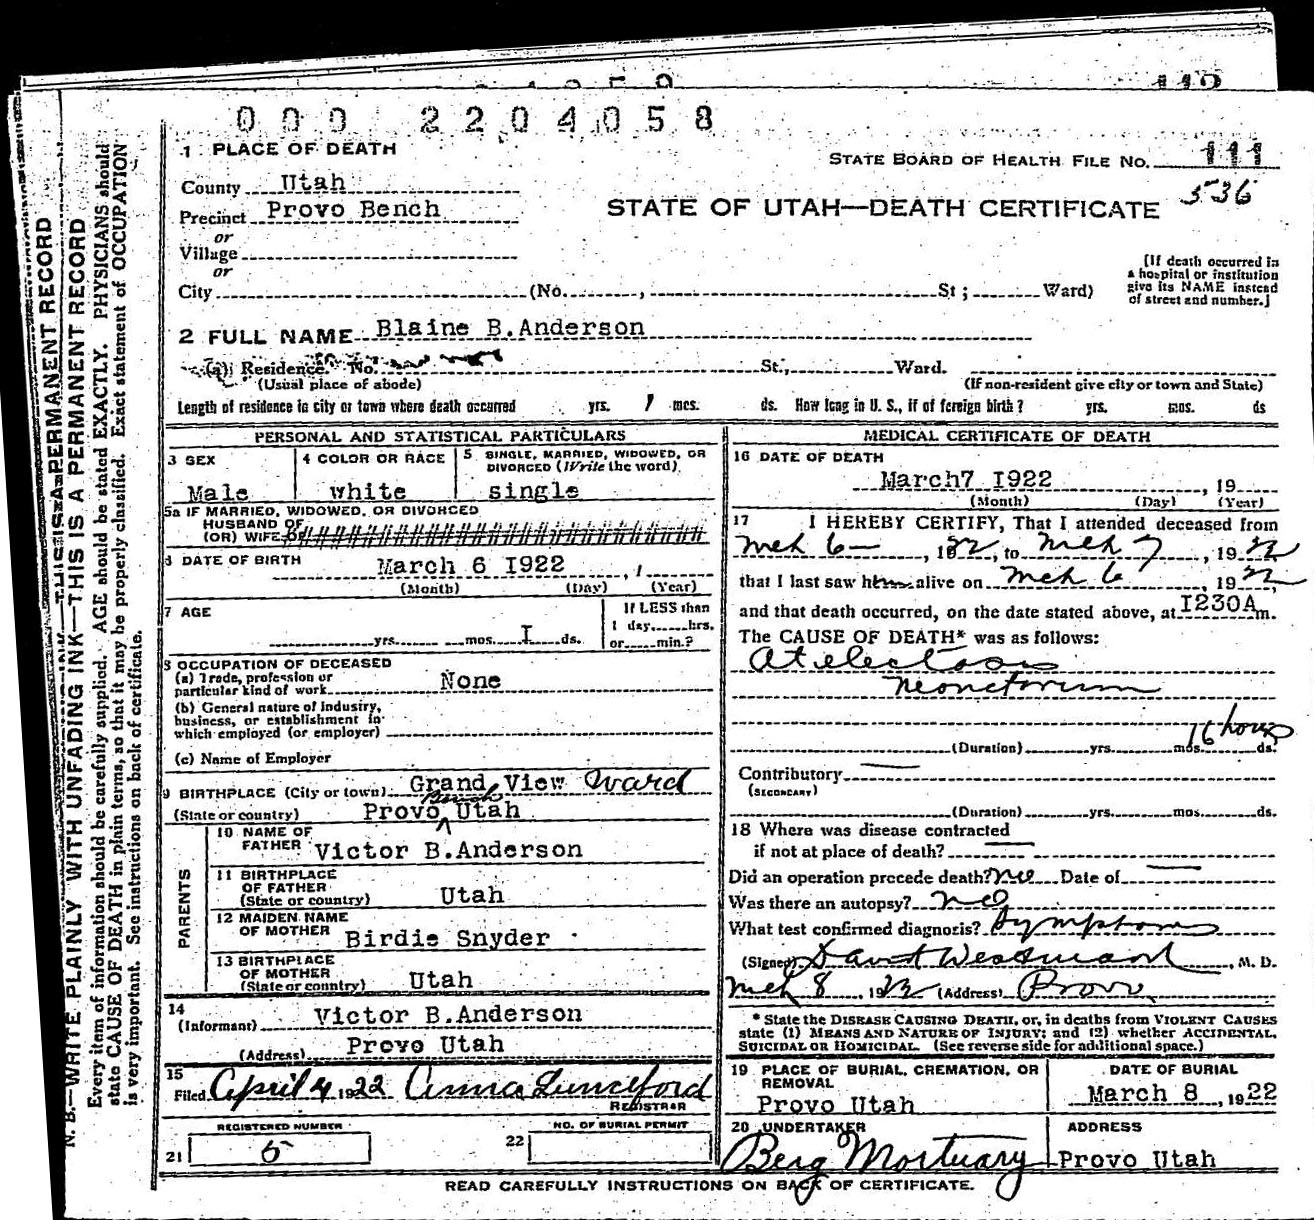 000 2204058
1 PLACE OF DEATH
STATE BOARD OF HEALTH FILE NO. 111
536
County Utah
Precinct Provo Bench
STATE OF UTAH—DEATH CERTIFICATE
or
Village
or
City (No. , St ; Ward)
[If death occurred in
a hospital or institution
give its NAME instead
of street and number.]
2 FULL NAME Blaine B.Anderson
(a) Residence. No. St., Ward.
(Usual place of abode) (If non-resident give city or town and State)
Length of residence in city or town where death occurred yrs. 1 mos. ds. How long in U. S., if of foreign birth ? yrs. mos. ds
PERSONAL AND STATISTICAL PARTICULARS
3 SEX
Male
4 COLOR OR RACE
white
5 SINGLE, MARRIED, WIDOWED, OR
DIVORCED (Write the word)
single
5a IF MARRIED, WIDOWED, OR DIVORCED
HUSBAND OF
(OR) WIFE OF
6 DATE OF BIRTH
March 6 I922
(Month) (Day) (Year)
7 AGE
yrs. mos. I ds.
If LESS than
1 day, hrs.
or min.?
8 OCCUPATION OF DECEASED
(a) Trade, profession or
particular kind of work None
(b) General nature of Industry,
business, or establishment in
which employed (or employer)
(c) Name of Employer
9 BIRTHPLACE (City or town) Grand View Ward
Bench
(State or country) Provo Utah
PARENTS
10 NAME OF
FATHER Victor B.Anderson
11 BIRTHPLACE
OF FATHER
(State or country) Utah
12 MAIDEN NAME
OF MOTHER Birdie Snyder
13 BIRTHPLACE
OF MOTHER
(State or country) Utah
14
(Informant) Victor B.Anderson
(Address) Provo Utah
15
Filed April 4 1922 Anna Lunceford
REGISTRAR
REGISTERED NUMBER
21 5
NO. OF BURIAL PERMIT
22
MEDICAL CERTIFICATE OF DEATH
16 DATE OF DEATH
March7 I922 , 19
(Month) (Day) (Year)
17 I HEREBY CERTIFY, That I attended deceased from
Mch 6— , 1922, to Mch 7 , 1922
that I last saw him alive on Mch 6 , 1922,
and that death occurred, on the date stated above, at I230A m.
The CAUSE OF DEATH* was as follows:
Atelectasis
Neonatorum
16 hours
(Duration) yrs. mos. ds.
Contributory —
(SECONDARY)
(Duration) yrs. mos. ds.
18 Where was disease contracted
if not at place of death? —
Did an operation precede death? no Date of —
Was there an autopsy? no
What test confirmed diagnosis? Symptoms
(Signed) David Westwood , M. D.
Mch 8 , 1922 (Address) Provo
* State the DISEASE CAUSING DEATH, or, in deaths from VIOLENT CAUSES
state (1) MEANS AND NATURE OF INJURY; and (2) whether ACCIDENTAL,
SUICIDAL OR HOMICIDAL. (See reverse side for additional space.)
19 PLACE OF BURIAL, CREMATION, OR
REMOVAL
Provo Utah
DATE OF BURIAL
March 8 , 1922
20 UNDERTAKER
Berg Mortuary
ADDRESS
Provo Utah
READ CAREFULLY INSTRUCTIONS ON BACK OF CERTIFICATE.
N. B.—WRITE PLAINLY WITH UNFADING INK—THIS IS A PERMANENT RECORD
Every item of information should be carefully supplied. AGE should be stated EXACTLY. PHYSICIANS should
state CAUSE OF DEATH in plain terms, so that it may be properly classified. Exact statement of OCCUPATION
is very important. See instructions on back of certificate.